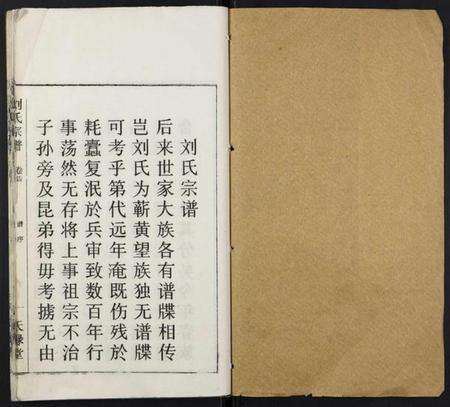 刘氏宗谱
后来世家大族各有谱牒相传
岂刘氏为蕲黄望族独无谱牒
可考乎第代远年淹既伤残於
耗蠹复泯於兵审致数百年行
事荡然无存将上事祖宗不治
子孙旁及昆弟得毋考掳无由
刘氏宗谱
谱序